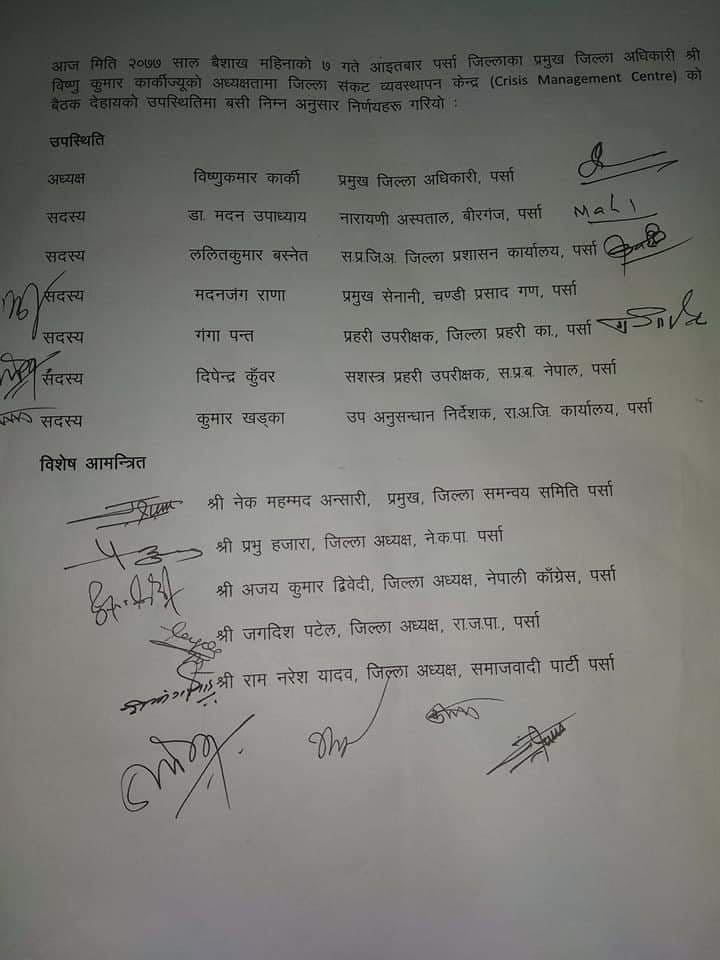 आज मिति २०७७ साल बैशाख महिनाको ७ गते आइतबार पर्सा जिल्लाका प्रमुख जिल्ला अधिकारी श्री
बिष्णु कुमार कार्कीज्यूको अध्यक्षतामा जिल्ला संकट व्यवस्थापन केन्द्र (Crisis Management Centre) को
बैठक देहायको उपस्थितिमा बसी निम्न अनुसार निर्णयहरू गरियो :
उपस्थिति
अध्यक्ष विष्णुकमार कार्की प्रमुख जिल्ला अधिकारी, पर्सा
सदस्य डा. मदन उपाध्याय नारायणी अस्पताल, बीरगंज, पर्सा
सदस्य ललितकुमार बस्नेत स.प्र.जि.अ. जिल्ला प्रशासन कार्यालय, पर्सा
सदस्य मदनजंग राणा प्रमुख सेनानी, चण्डी प्रसाद गण, पर्सा
सदस्य गंगा पन्त प्रहरी उपरीक्षक, जिल्ला प्रहरी का., पर्सा
सदस्य दिपेन्द्र कुँवर सशस्त्र प्रहरी उपरीक्षक, स.प्र.ब. नेपाल, पर्सा
सदस्य कुमार खड्का उप अनुसन्धान निर्देशक, रा.अ.जि. कार्यालय, पर्सा
विशेष आमन्त्रित
श्री नेक महम्मद अन्सारी, प्रमुख, जिल्ला समन्वय समिति पर्सा
श्री प्रभु हजारा, जिल्ला अध्यक्ष, ने.क.पा. पर्सा
श्री अजय कुमार द्विवेदी, जिल्ला अध्यक्ष, नेपाली काँग्रेस, पर्सा
श्री जगदिश पटेल, जिल्ला अध्यक्ष, रा.ज.पा., पर्सा
श्री राम नरेश यादव, जिल्ला अध्यक्ष, समाजवादी पार्टी पर्सा